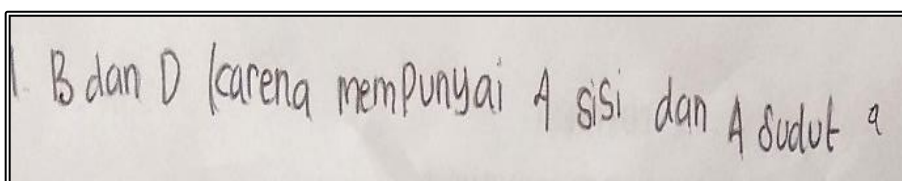 1. B dan D karena mempunyai 4 sisi dan 4 sudut